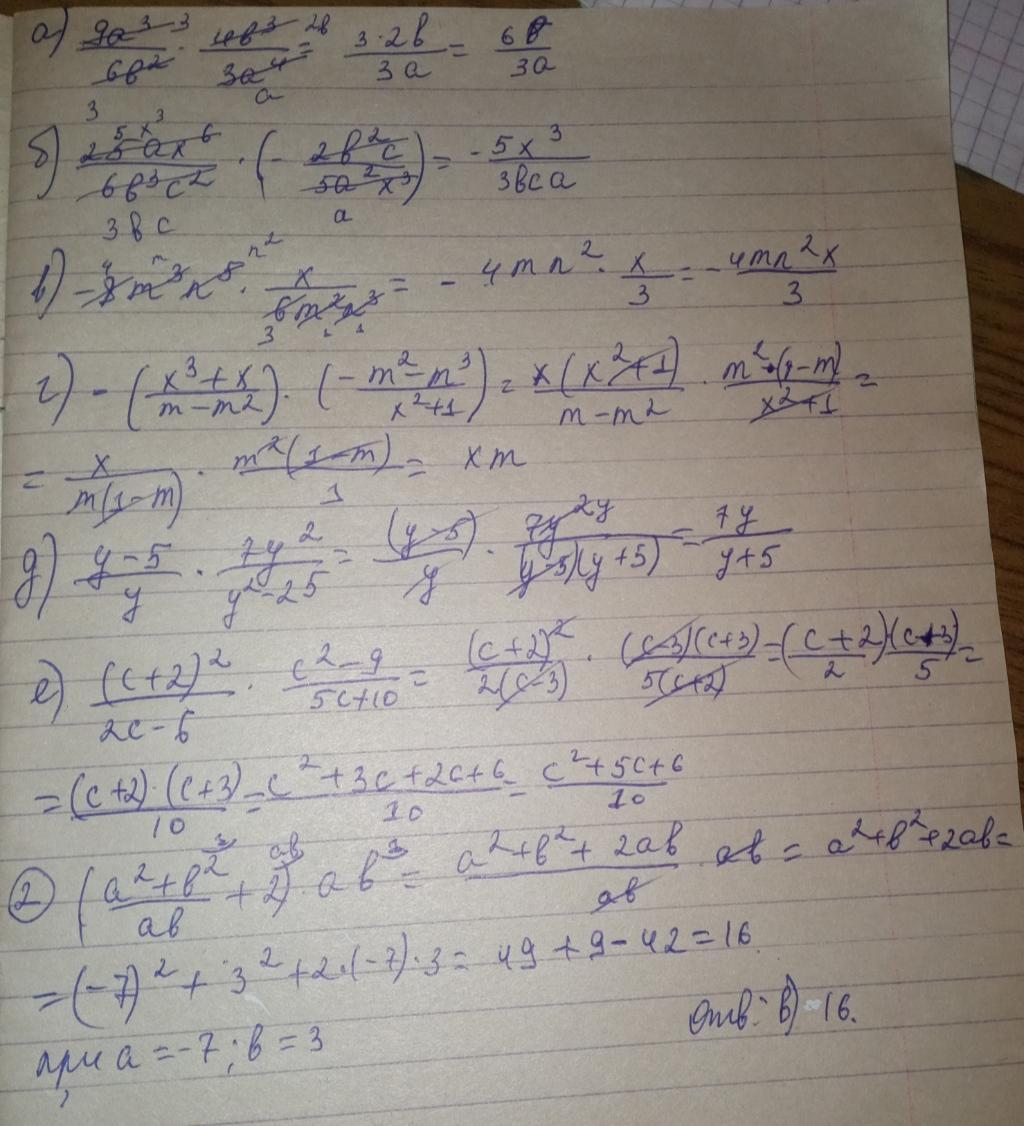 а) 9a³ 3/6b² 3 · 4b³ 2b/3a⁴ a = 3·2b/3a = 6b/3a
б) 25ax⁶ 5 x³/6b³c² 3bc · (- 2b²c/5a²x³ a) = -5x³/3bca
в) -8m³n⁵ · x/6m²n³ 3 = - 4mn² · x/3 = - 4mn²x/3
г) - (x³+x/m-m²) · (-m²-m³/x²+1) = x(x²+1)/m-m² · m²·(1-m)/x²+1 =
= x/m(1-m) · m²(1-m)/1 = xm
д) y-5/y · 7y²/y²-25 = (y-5)/y · 7y² y/(y-5)(y+5) = 7y/y+5
е) (c+2)²/2c-6 · c²-9/5c+10 = (c+2)²/2(c-3) · (c-3)(c+3)/5(c+2) = (c+2/2)(c+3)/5 =
= (c+2)·(c+3)/10 = c²+3c+2c+6/10 = c²+5c+6/10
② (a²+b²/ab + 2 ab) · ab = a²+b²+2ab/ab · ab = a²+b²+2ab =
= (-7)² + 3² + 2·(-7)·3 = 49 + 9 - 42 = 16.
при a = -7; b = 3 Отв: в) 16.